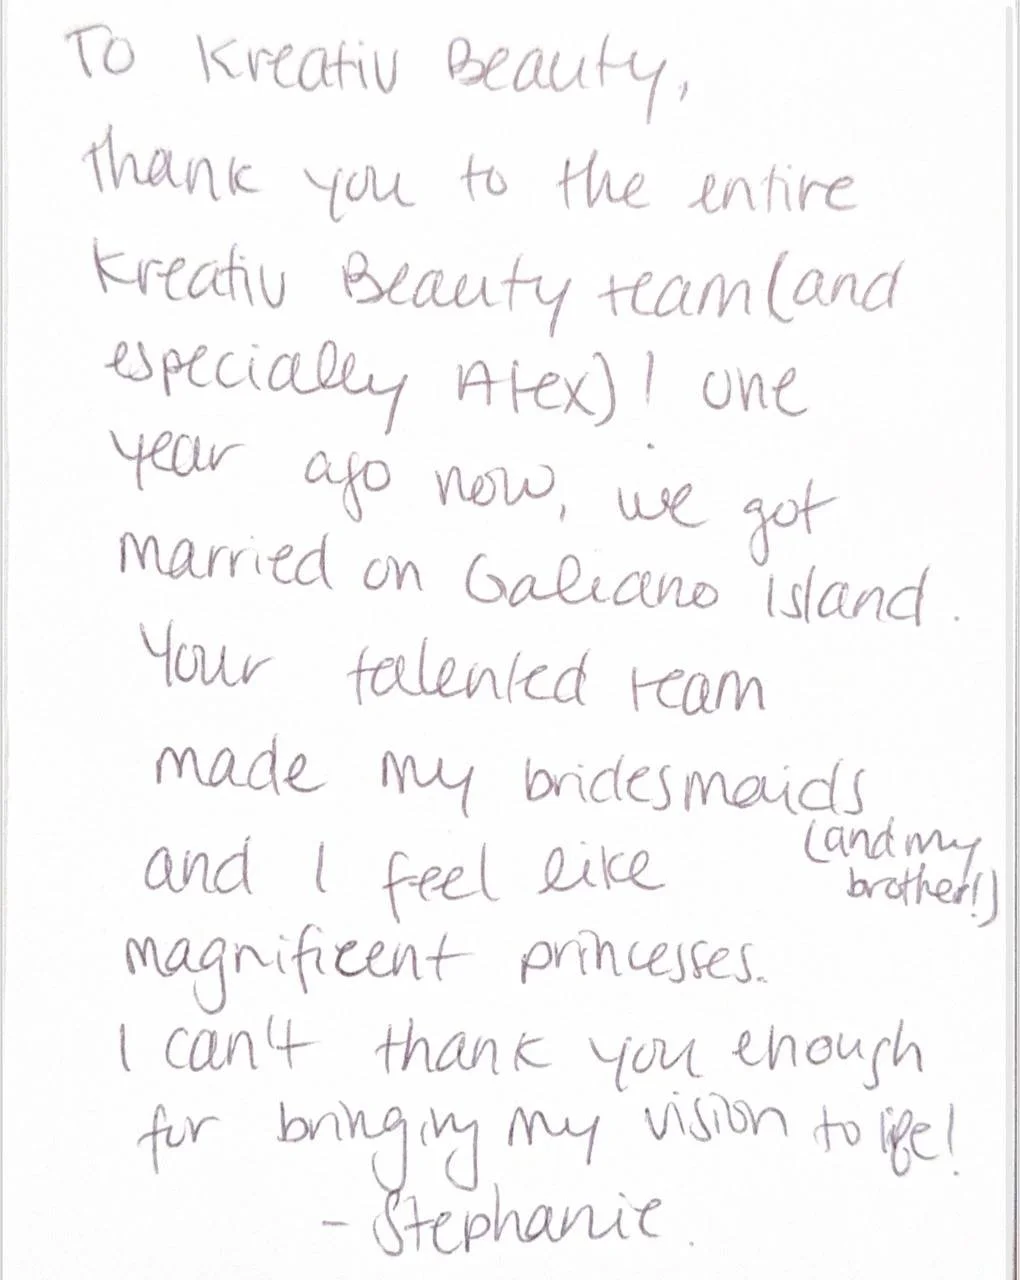 To Kreativ Beauty,
thank you to the entire
Kreativ Beauty team (and
especially Alex)! One
year ago now, we got
married on Galiano Island.
Your talented team
made my bridesmaids
(and my
brother!)
and I feel like
magnificent princesses.
I can't thank you enough
for bringing my vision to life!
- Stephanie.